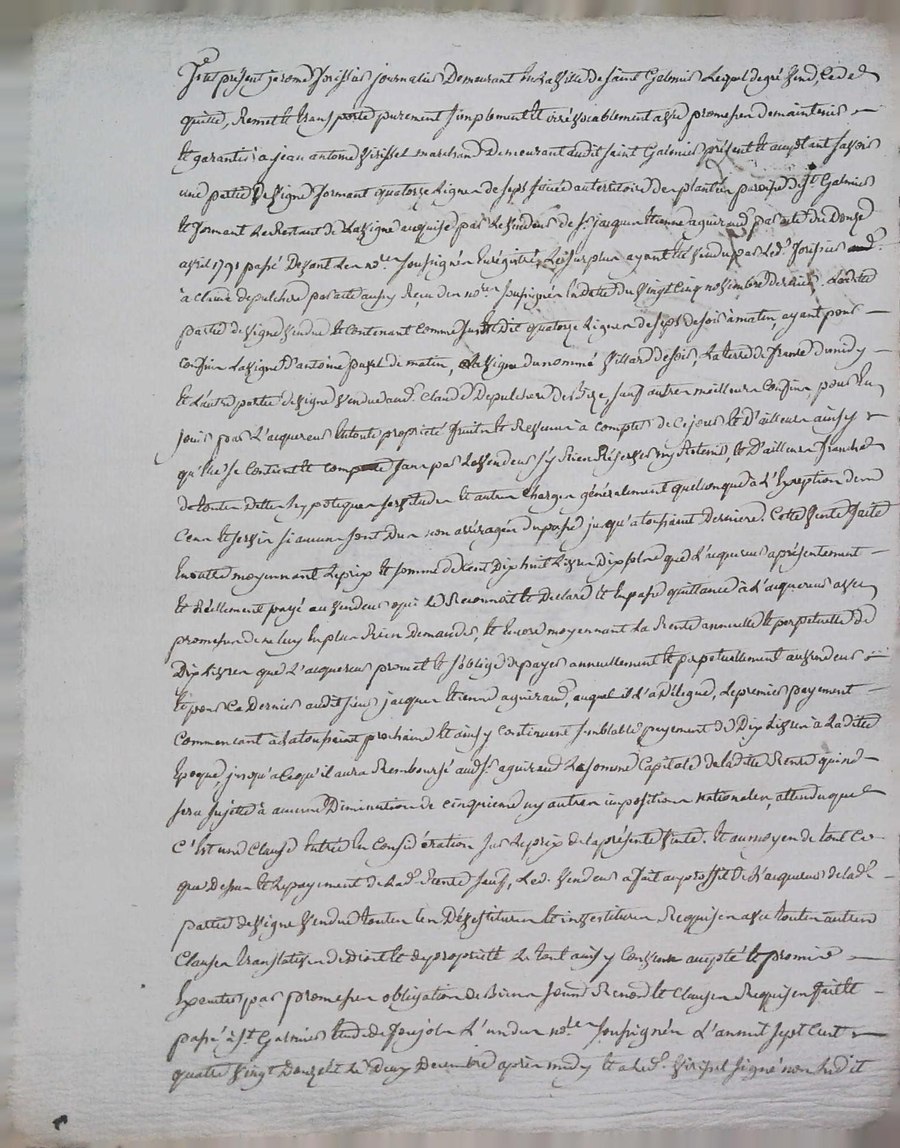 fut présent jerome forissier journalier Demeurant en la Ville de saint Galmier Lequel de gré vend, Cede
quitte, Remet et transporte purement simplement et irrévocablement avec promesse de maintenir
et garantir a jean antoine virissel marchand Demeurant audit saint Galmier présent et acceptant savoir
une partie de vigne formant quatorze Lignes de sept situé au territoire de plantin paroisse de St Galmier
et formant Le Restant de La vigne acquise par Le vendeur de sr jacques Etienne aguiraud par acte du Douze
avril 1791 passé Devant Les nores soussignés Enregistré, Le surplus ayant été vendu par Led. forissier
à Claude depulchere par acte aussy Recu des nores soussignés En date du vingt cinq novembre dernier. Ladite
partie de vigne vendue et contenant comme sus est dit quatorze Lignes de sept de soir à matin, ayant pour
confins La vigne d'antoine de matin, La vigne du nommé villard de soir, La terre de de midy
et L'autre partie de vigne vendue aud. Claude Depulchere de bize sauf autres meilleurs confins, pour en
jouir par L'acquereur en toute propriété fruits et Revenus à compter de ce jour et D'ailleurs ainsy
qu'elle se Contient et comporte sans par Le vendeur s'y Rien Réserver ny Retenir, et D'ailleurs franche
de toutes Dettes hypoteques servitudes et autres charges généralement quelconques à L'Exception des
Cens et servis si aucuns sont dus non arréragés du passé jusqu'a toussaint Derniere. Cette vente faite
En outre moyennant Le prix et somme de Cent Dix huit Livres Dix sols que L'acquereur a présentement
et Réellement payé au vendeur qui Le Reconnoit et Declare et En passe quittance à L'acquereur avec
promesse de ne luy En plus Rien Demander et Encore moyennant La Rente annuelle et perpetuelle de
Dix Livres que L'acquereur promet et s'oblige de payer annuellement et perpetuellement au vendeur
et pour Ce Dernier audit sieur jacques Etienne aguiraud, auquel il L'a Délegué, Le premier payement
Commencant à La toussaint prochaine et ainsy continuer semblable payement de Dix Livres à Ladite
Epoque, jusqu'à Ce qu'il aura Remboursé aud. sr aguiraud La somme Capitale de Ladite Rente qui ne
sera sujette à aucune Diminution de cinquieme ny autres impositions nationales, attendu que
C'est une Clause Entrée En Considération sur Le prix de La présente vente. Et au moyen de tout Ce
que Dessus et Le payement de Lad. Rente sauf, Led. vendeur a fait au proffit de L'acquereur de Lad.
partie de vigne vendue toutes Les Dévestitures et investitures Requises avec toutes autres
Clauses translatives de droit et de propriété Le tout ainsy Convenu accepté et promis
Executer par promesses obligation de Biens soumis Renond et Clauses Requises fait et
passé à St Galmier Etude de L'un des nores soussignés L'an mil sept Cent
quatre vingt Douze et Le Deux Decembre après midy et a Led. virissel signé non Ledit